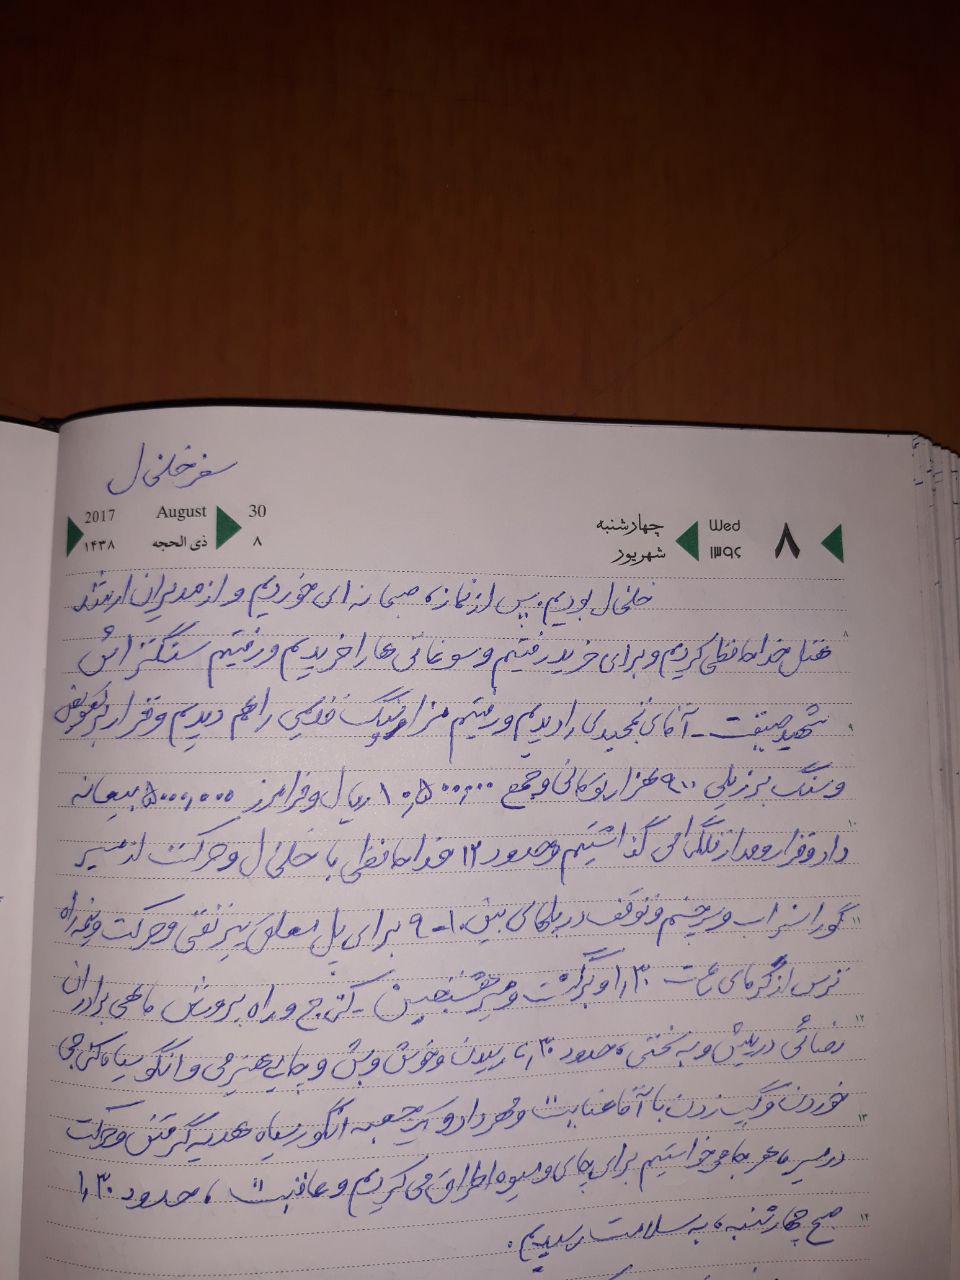 سفر خلخال
2017 August 30
۱۴۳۸ ذی الحجه ۸
چهارشنبه Wed ۸
شهریور ۱۳۹۶
خلخال بودیم. پس از نماز، صبحانه ای خوردیم و از مدیران ارشد
۸
هتل خداحافظی کردیم و برای خرید رفتیم و سوغاتی ها را خریدیم و رفتیم سنگتراش
۹
شهید صیقت - آقای نجیدی را دیدیم و رفتیم مزار و سنگ قدیمی را هم دیدیم و قرار بر تعویض
و سنگ برزیلی ۹۰۰ هزار تومانی و جمع ۱۰,۵۰۰,۰۰۰ ریال و فرامرز ۵,۰۰۰,۰۰۰ بیعانه
۱۰
داد و قرار و مدار تلگرامی گذاشتیم و حدود ۱۲ خداحافظی با خلخال و حرکت از مسیر
۱۱
و توقف در بین ۱۰-۹ برای پل معلق و حرکت
ترس از گرمای ۱,۳۰ و برگشت و مسیر - کرج و راه پرورش ماهی برادران
۱۲
رضائی در پیش و به سختی، حدود رسیدن و خوش و بش و چایی و انگور سیاه
خوردن و گپ زدن با آقا عنایت و مهرداد و یک جعبه انگور سیاه هدیه گرفتن و حرکت
۱۳
در مسیر ما هر جا می خواستیم برای چای و میوه اطراق می کردیم و عاقبت، حدود ۱,۳۰
۱۴
صبح چهارشنبه، به سلامت رسیدیم.